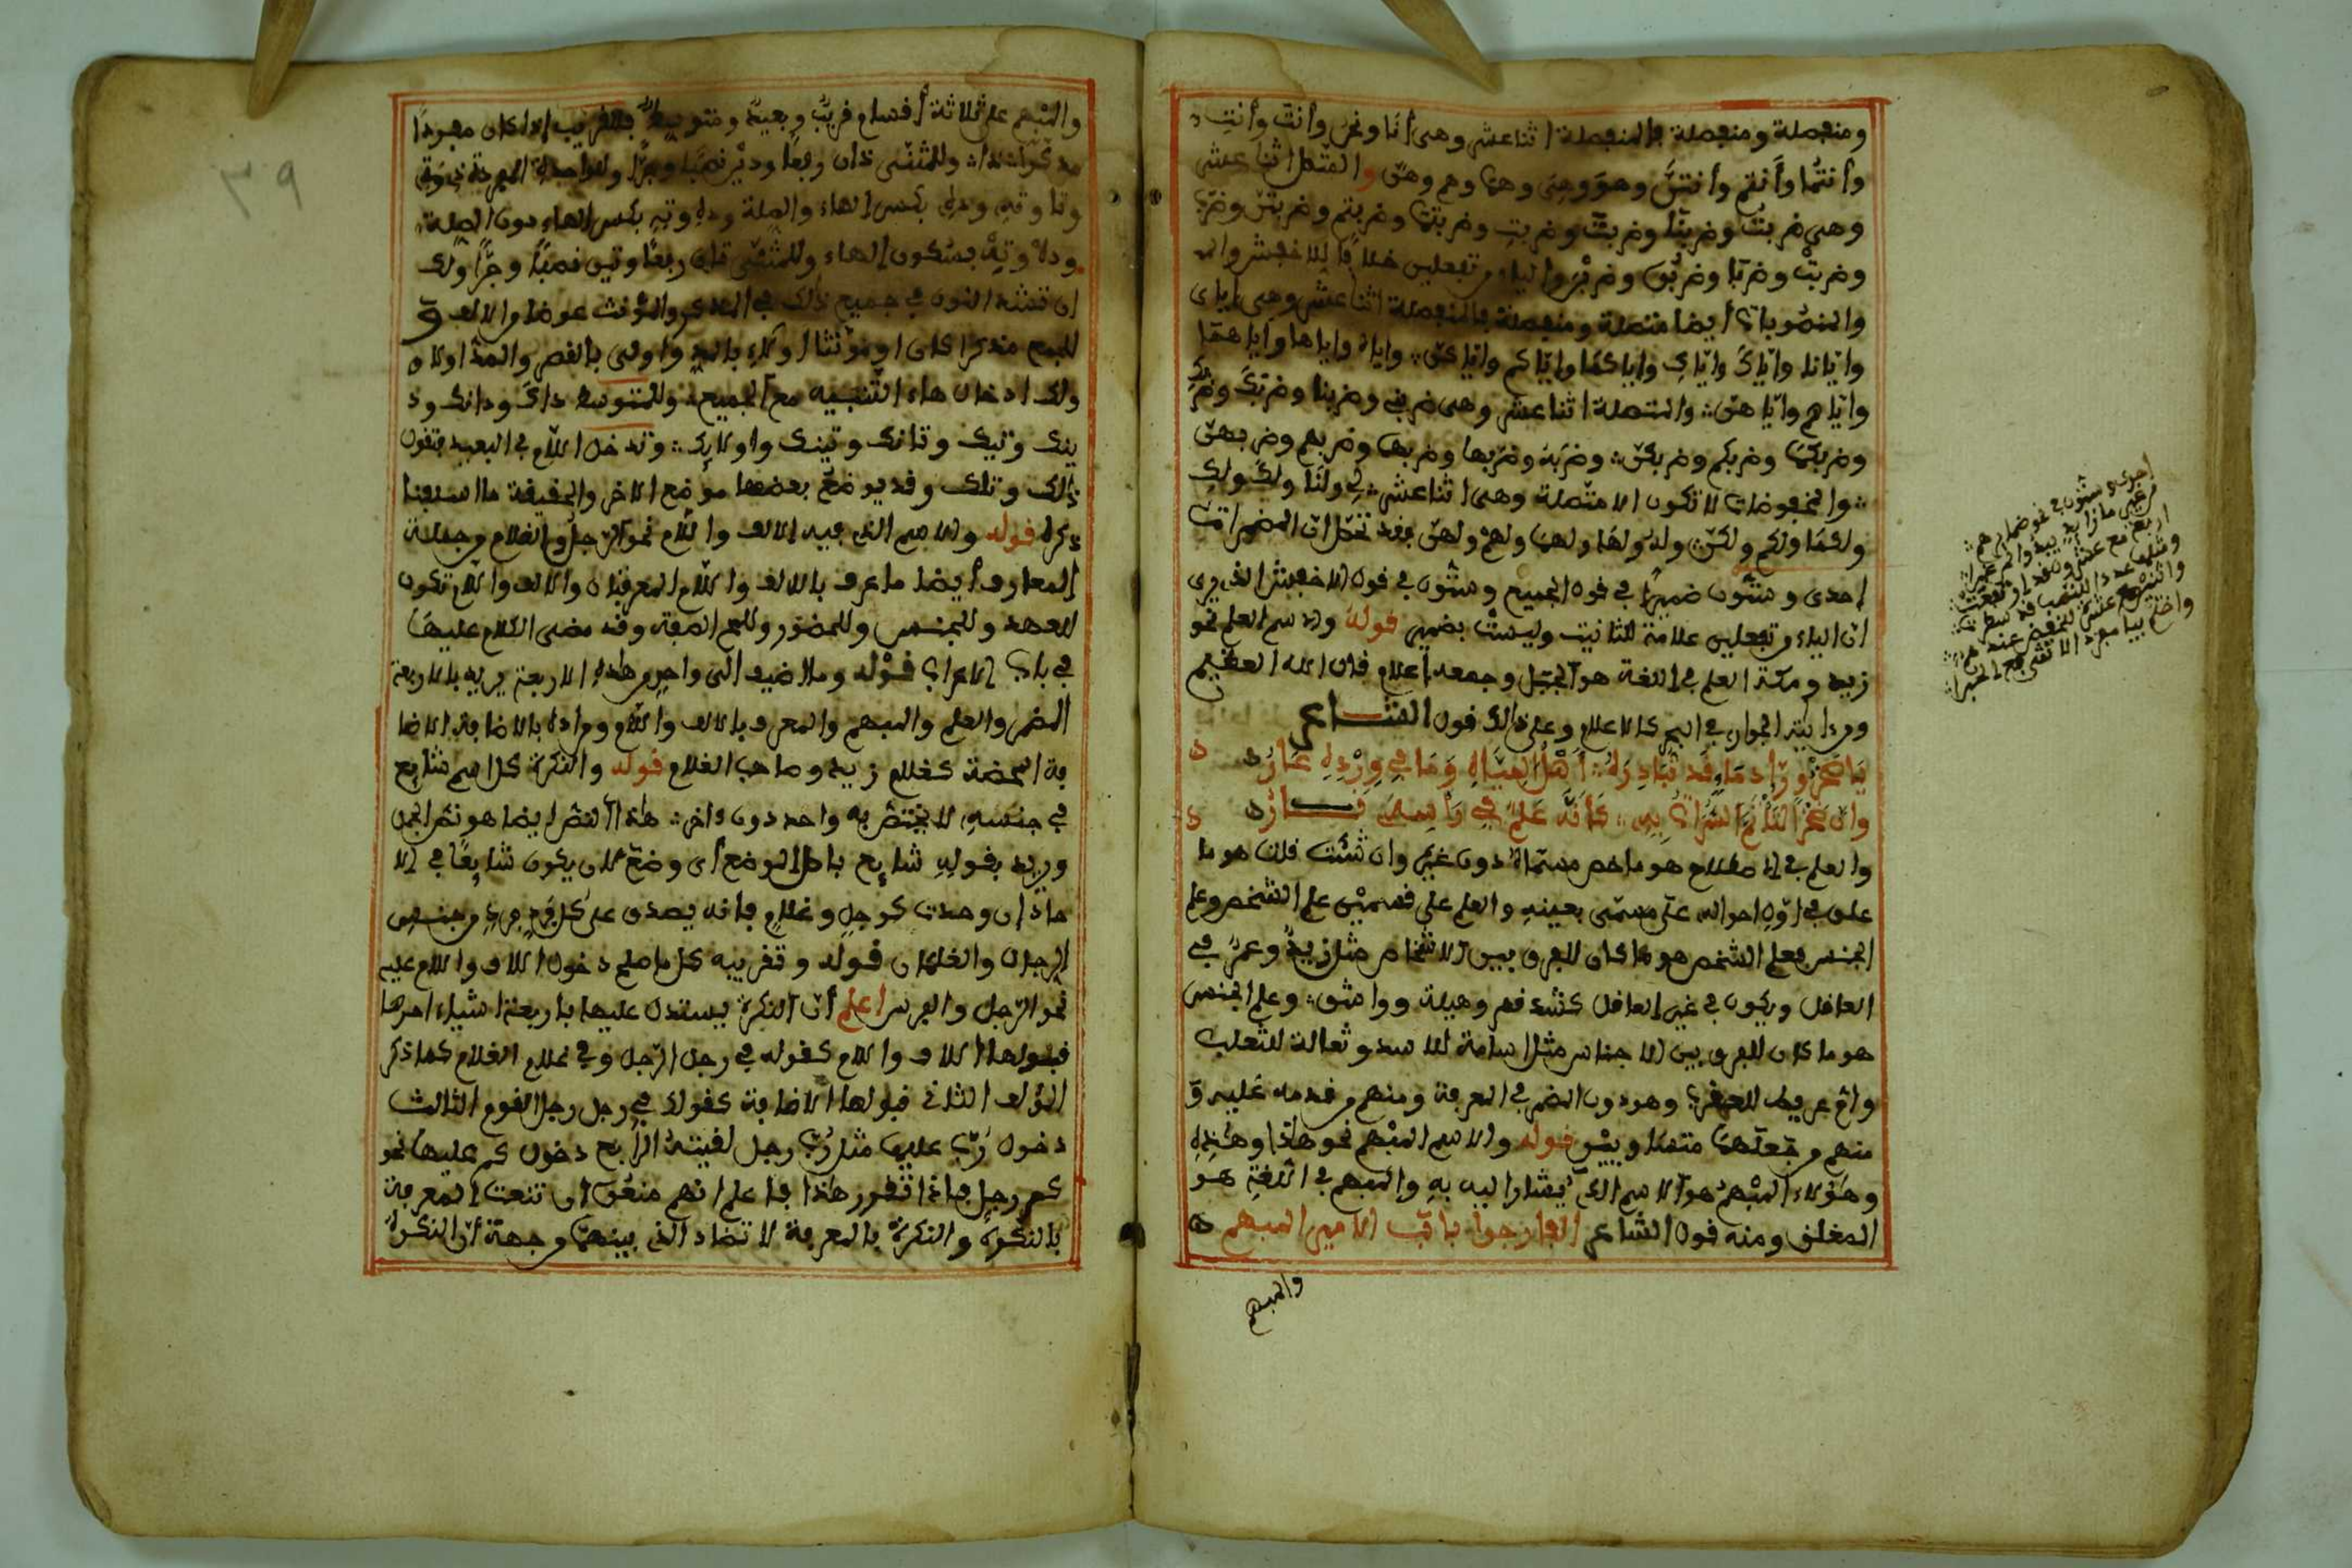 ومنفصلة ومنفصلة فالمنفصلة اثنا عشر وهي أنا ونحن وأنتَ وأنتِ
وأنتما وأنتم وأنتنّ وهو وهي وهما وهم وهنّ والمتّصل اثنا عشر
وهي ضربتُ وضربنا وضربتَ وضربتِ وضربتما وضربتم وضربتنّ وضرب
وضربتْ وضربا وضربوا وضربن والياء من تفعلين خلافا للاخفش وال
والمنصوبات أيضا متصلة ومنفصلة فالمنفصلة اثنا عشر وهي إياي
وإيّانا وإيّاكَ وإيّاكِ وإياكما وإيّاكم وإيّاكنّ وإياه وإياها وإياهما
وإيّاهم وإيّاهنّ والمتصلة اثنا عشر وهي ضربني وضربنا وضربكَ وضربكِ
وضربكما وضربكم وضربكنّ وضربه وضربها وضربهما وضربهم وضربهنّ
والمخفوضات لا تكون إلا متّصلة وهي اثنا عشر لي ولنا ولكَ ولكِ
ولكما ولكم ولكنّ وله ولها ولهما ولهم ولهنّ فقد تحصّل انّ المضمرات
إحدى وستّون ضميرًا في قول الجميع وستّون في قول الاخفش الذي يرى
انّ الياء من تفعلين علامة للتانيث وليست بضمير قوله والاسم العلم نحو
زيد ومكة العلم في اللغة هو الجبل وجمعه أعلام قال الله العظيم
ومن ءايته الجوار في البحر كالاعلام وعلى ذالك قول الشـــاعر
يا صخر ورّاد ماء قد تبادره أهل المياه وما في ورده عار
وإن صخرا لتأتمّ الهداة به كأنّه علم في رأسه نـــار
والعلم في الاصطلاح هو ما خصّ مسمّاه دون غيره وان شئت قلت هو ما
علق في اوّل احواله على مسمّى بعينه والعلم على قسمين علم الشخص وعلم
الجنس فعلم الشخص هو ما كان للفرق بين الاشخاص مثل زيد وعمر في
العاقل ويكون في غير العاقل كشدقم وهيلة وواشق وعلم الجنس
هو ما كان للفرق بين الاجناس مثل اسامة للاسد وثعالة للثعلب
وامّ عريط للعقرب وهو دون المضمر في المعرفة ومنهم من قدمه عليه و
منهم من جعلهما متساويين قوله والاسم المبهم نحو هاذا وهاذه
وهؤلاء المبهم هو الاسم الذي يشار اليه به والمبهم في اللغة هو
المغلق ومنه قول الشاعر الفارجوا باب الامير المبهم
والمبهم
إحدى وستّون في نحو ضمايرهم
من غير ما زايد يبدوا لمعتبرا
اربع مع عشرون قد ارتفعت
ومثلها عددا للنصب قد سطرت
واثنين مع عشرة للخفض عندهم
٣٩
والمبهم على ثلاثة أقسام قريب وبعيد ومتوسط فللقريب إذا كان مفردا
مذكّرا ذا وللمثنّى ذان رفعا وذين نصبا وجرّا وللواحدة المفردة ذي وتي
وتا وته وذه بكسر الهاء والصلة وذه وته بكسر الهاء دون الصلة
وذه وته بسكون الهاء وللمثنّى تان رفعا وتين نصبا وجرّا ولك
ان تشدّد النون في جميع ذلك في المذكر والمؤنث عوضا من الالف و
للجمع مذكرا كان اومؤنثا اولاء بالمد واولى بالقصر والمد اولاه
ولك ادخال هاء التنبيه مع الجميع وللمتوسط ذاك وذانك وذ
ينك وتيك وتانك وتينك واولايك وتدخل اللام في البعيد فتقول
ذالك وتلك وقد يوضع بعضها موضع الاخر والحقيقة ما اسلفنا
ذكره قوله والاسم الذي فيه الالف واللام نحو الرّجل والغلام من جملة
المعارف أيضا ما عرف بالالف واللام المعرفتان والالف واللام تكون
للعهد وللجنس وللحضور وللمح الصفة وقد مضى الكلام عليها
في باب الاعراب قوله وما اضيف الى واحد من هاذه الاربعة يريد بالاربعة
المضمر والعلم والمبهم والمعرف بالالف واللام ومراده بالاضافة الاضا
فة المحضة كغلام زيد وصاحب الغلام قوله والنكرة كل اسم شايع
في جنسه لا يختصّ به واحد دون ءاخر هاذا النصّ ايضا هو نصّ الجمل
ويريد بقوله شايع باصل الوضع أى وضع لان يكون شايعا في الا
حاد إن وجدت كرجل وغلام فانه يصدق على كل فرد فرد من جنس
الرجال والغلمان قوله وتقريبه كل ما صلح دخول الالف واللام عليه
نحو الرّجل والفرس اعلم أنّ النكرة يستدل عليها باربعة اشياء احدها
قبولها الالف واللام كقوله في رجل الرّجل وفي غلام الغلام كما ذكر
المؤلف الثاني قبولها الاضافة كقولك في رجل رجل القوم الثالث
دخول رُبّ عليها مثل رُبّ رجل لقيته الرابع دخول كم عليها نحو
كم رجل فإذا تقرر هاذا فاعلم انهم منعوا ان تنعت المعرفة
بالنكرة والنكرة بالمعرفة لا تضاد الذي بينهما من جهة أنّ النكرة